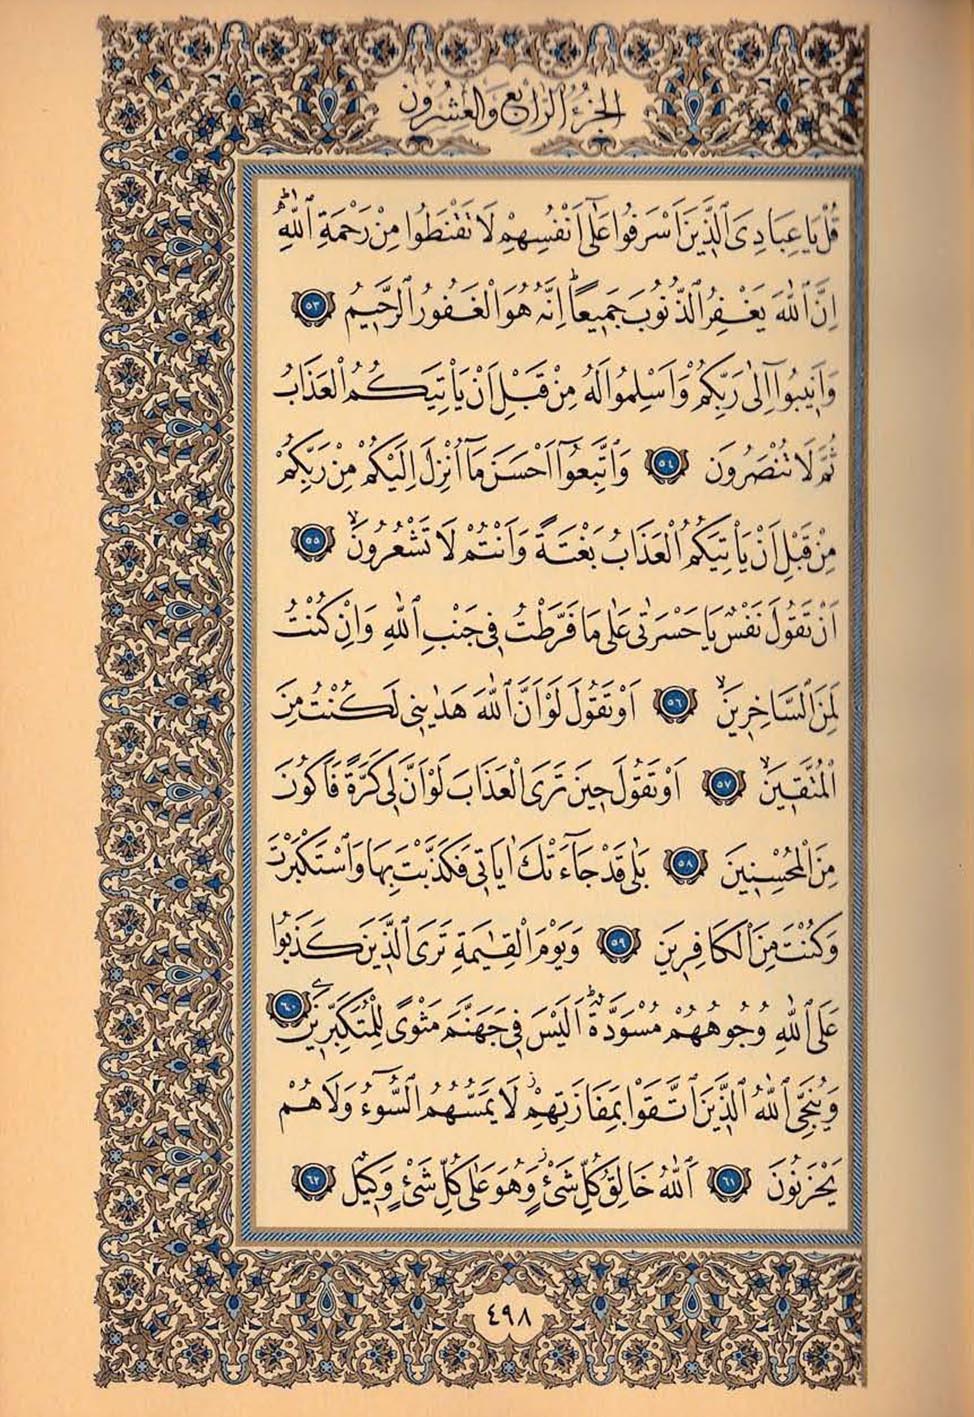 الجزء الرابع والعشرون
قُلْ يَا عِبَادِىَ ٱلَّذِينَ اَسْرَفُوا عَلٰٓى اَنْفُسِهِمْ لَا تَقْنَطُوا مِنْ رَحْمَةِ ٱللّٰهِۜ
اِنَّ ٱللّٰهَ يَغْفِرُ ٱلذُّنُوبَ جَمِيعًاۜ اِنَّهُ هُوَ الْغَفُورُ ٱلرَّحِيمُ ٥٣
وَاَنِيبُوٓا اِلٰى رَبِّكُمْ وَاَسْلِمُوا لَهُ مِنْ قَبْلِ اَنْ يَاْتِيَكُمُ الْعَذَابُ
ثُمَّ لَا تُنْصَرُونَ ٥٤ وَٱتَّبِعُوٓا اَحْسَنَ مَٓا اُنْزِلَ اِلَيْكُمْ مِنْ رَبِّكُمْ
مِنْ قَبْلِ اَنْ يَاْتِيَكُمُ الْعَذَابُ بَغْتَةً وَاَنْتُمْ لَا تَشْعُرُونَۙ ٥٥
اَنْ تَقُولَ نَفْسٌ يَا حَسْرَتٰى عَلٰى مَا فَرَّطْتُ فِى جَنْبِ ٱللّٰهِ وَاِنْ كُنْتُ
لَمِنَ ٱلسَّاخِرِينَۙ ٥٦ اَوْ تَقُولَ لَوْ اَنَّ ٱللّٰهَ هَدٰينِى لَكُنْتُ مِنَ
الْمُتَّقِينَۙ ٥٧ اَوْ تَقُولَ حِينَ تَرَى الْعَذَابَ لَوْ اَنَّ لِى كَرَّةً فَاَكُونَ
مِنَ الْمُحْسِنِينَ ٥٨ بَلٰى قَدْ جَٓاءَتْكَ اٰيَاتِى فَكَذَّبْتَ بِهَا وَٱسْتَكْبَرْتَ
وَكُنْتَ مِنَ الْكَافِرِينَ ٥٩ وَيَوْمَ الْقِيٰمَةِ تَرَى ٱلَّذِينَ كَذَبُوا
عَلَى ٱللّٰهِ وُجُوهُهُمْ مُسْوَدَّةٌۜ اَلَيْسَ فِى جَهَنَّمَ مَثْوًى لِلْمُتَكَبِّرِينَ ٦٠
وَيُنَجِّى ٱللّٰهُ ٱلَّذِينَ ٱتَّقَوْا بِمَفَازَتِهِمْۘ لَا يَمَسُّهُمُ ٱلسُّٓوءُ وَلَا هُمْ
يَحْزَنُونَ ٦١ ٱللّٰهُ خَالِقُ كُلِّ شَىْءٍۘ وَهُوَ عَلٰى كُلِّ شَىْءٍ وَكِيلٌ ٦٢
٤٩٨